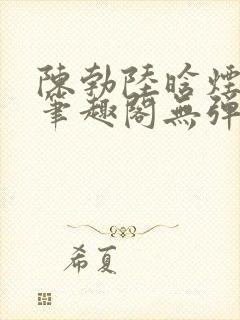 陳勃陸晗煙
筆趣閣無彈
希夏